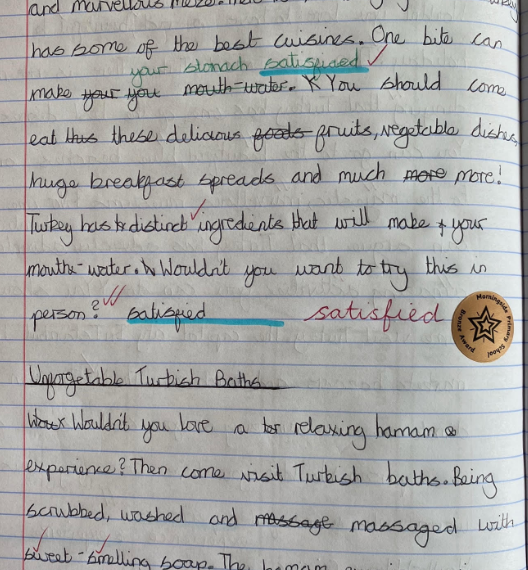 and marvellous
has some of the best cuisines. One bite can
your stomach satisfied
make your you mouth-water. You should come
eat thus these delicious foods fruits, vegetable dishes,
huge breakfast spreads and much more more!
Turkey has distinct ingredients that will make your
mouth-water. Wouldn't you want to try this in
person? satisfied satisfied
Morningside Primary School
Unforgetable Turkish Baths
Wouldn't you love a relaxing hamam
experience? Then come visit Turkish baths. Being
scrubbed, washed and massage massaged with
sweet-smelling soap. The hamam